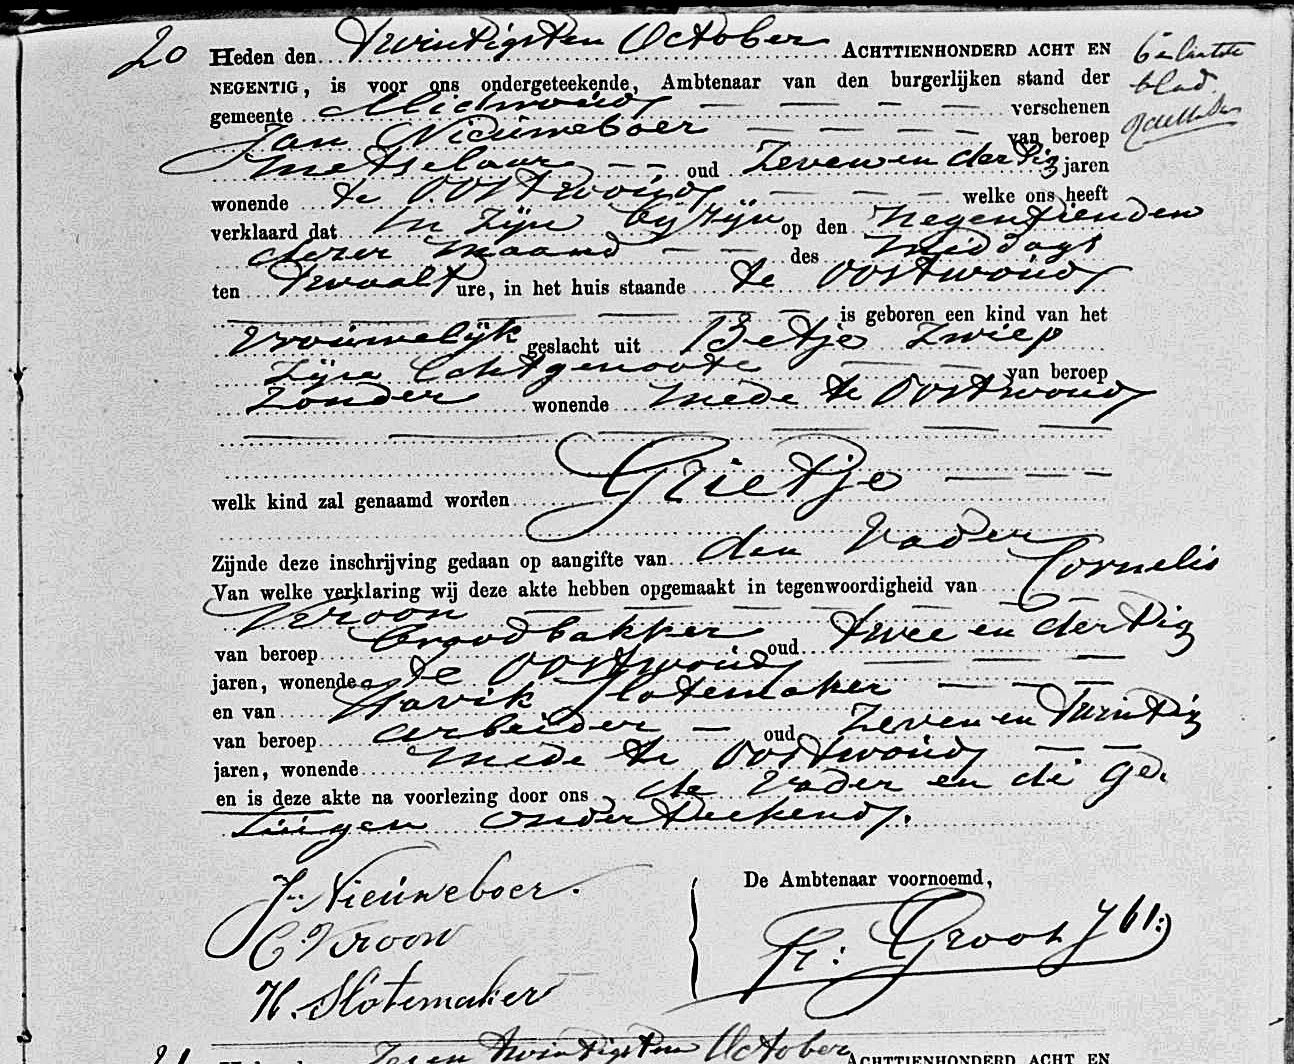 20 Heden den Twintigsten October ACHTTIENHONDERD ACHT EN
NEGENTIG, is voor ons ondergeteekende, Ambtenaar van den burgerlijken stand der
gemeente Midwoud verschenen
Jan Nieuweboer van beroep
metselaar oud zeven en dertig jaren
wonende te Oostwoud welke ons heeft
verklaard dat in zijn bijzijn op den negentienden
dezer maand des middags
ten twaalf ure, in het huis staande te Oostwoud
is geboren een kind van het
vrouwelijk geslacht uit Betje Zwiep
zijne Echtgenoote van beroep
zonder wonende mede te Oostwoud
Grietje
welk kind zal genaamd worden
Zijnde deze inschrijving gedaan op aangifte van den Vader
Van welke verklaring wij deze akte hebben opgemaakt in tegenwoordigheid van Cornelis
Vroon
van beroep broodbakker oud twee en dertig
jaren, wonende te Oostwoud
en van Havik Slotemaker
van beroep arbeider oud zeven en twintig
jaren, wonende mede te Oostwoud
en is deze akte na voorlezing door ons de Vader en de ge-
tuigen onderteekend.
J. Nieuweboer.
De Ambtenaar voornoemd,
C. Vroon
K: Groot Jbz:
H. Slotemaker
6e
blad
21 Heden den een en twintigsten October ACHTTIENHONDERD ACHT EN